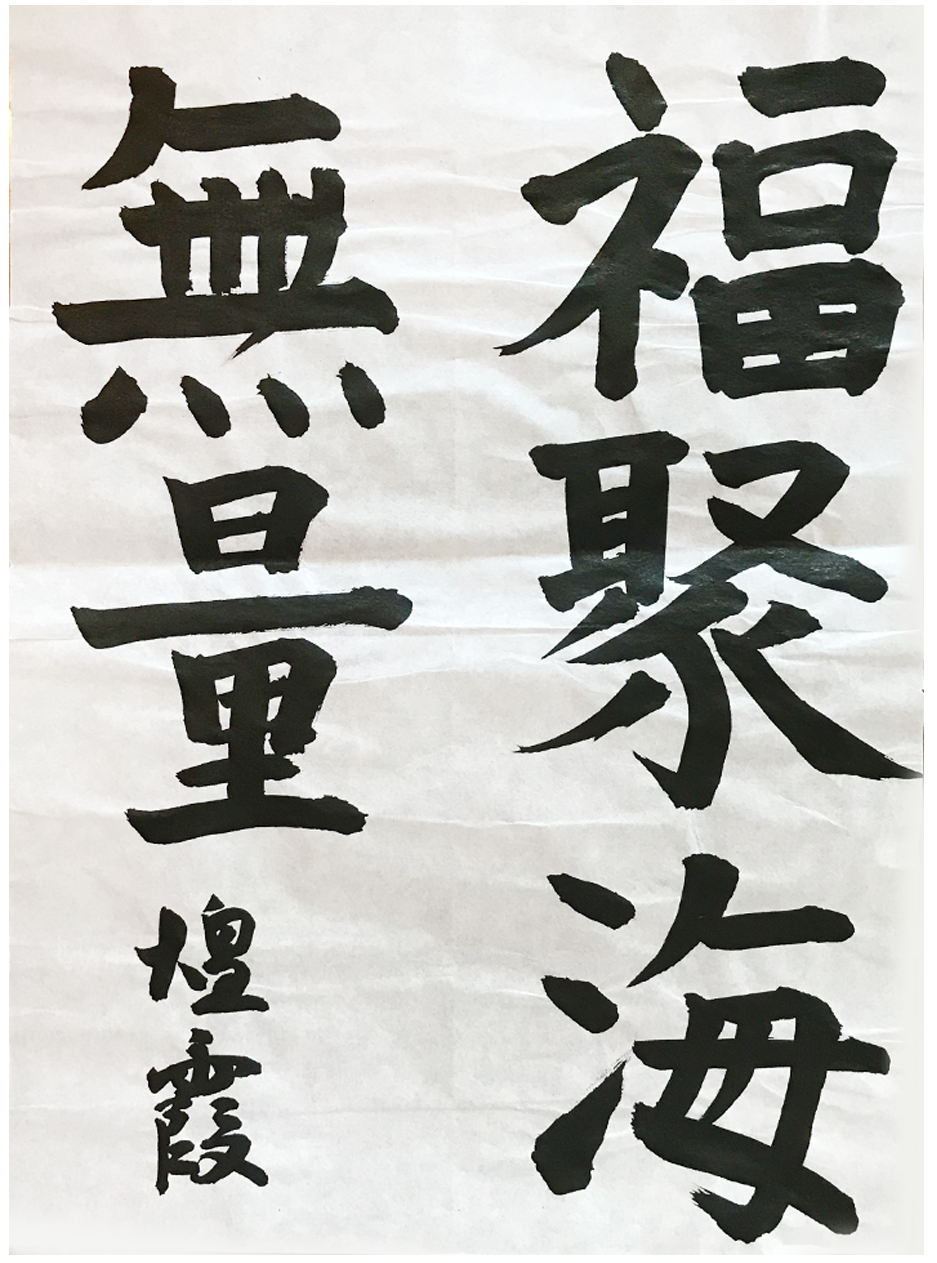 福聚海
無量 煌霞